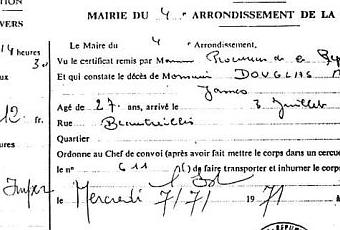 TION
MAIRIE DU 4e ARRONDISSEMENT DE LA
VERS
Le Maire du 4e Arrondissement,
14 heures
30
Vu le certificat remis par Monsieur Procureur de la Rép
Et qui constate le décès de Monsieur DOUGLAS M
ux
James
Agé de 27 ans, arrivé le 3 Juillet
12 fr.
Rue Beautreillis
Quartier
ures
Ordonne au Chef de convoi (après avoir fait mettre le corps dans un cercue
le n° 611 de faire transporter et inhumer le corps
le Mercredi 7/7/ 1971 à
RÉPU